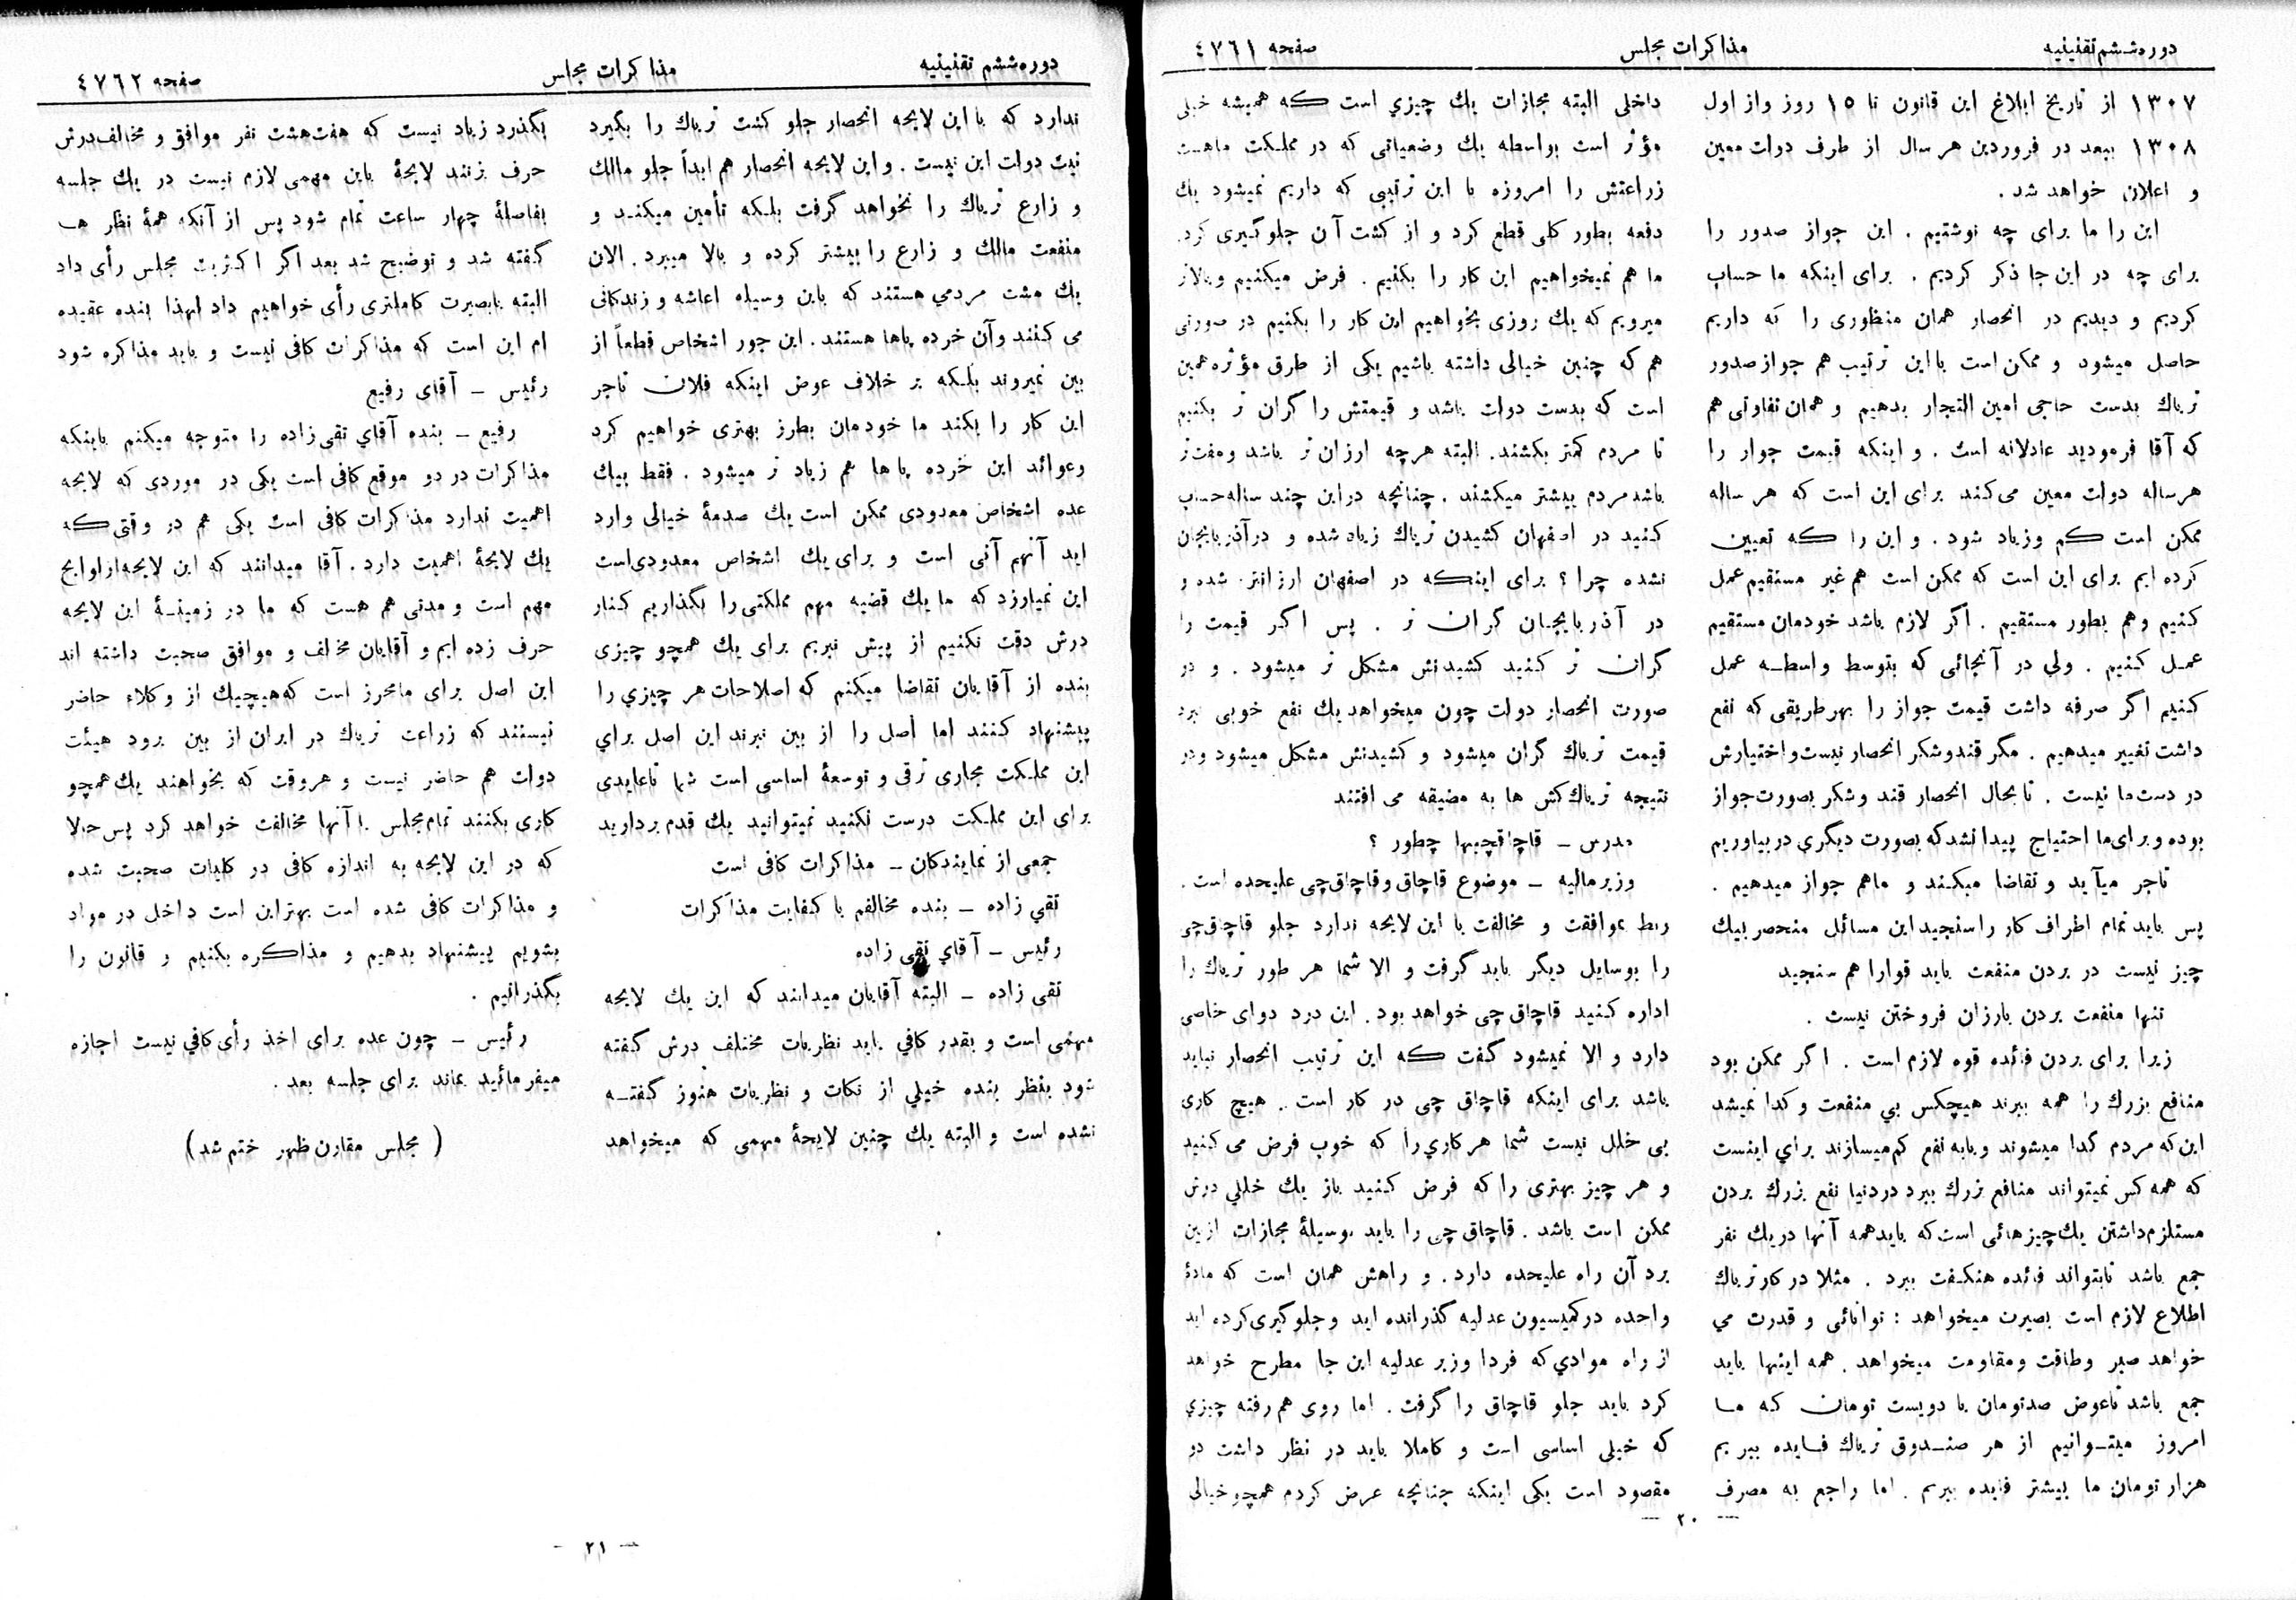 دوره‌ششم تقنینیه مذاکرات مجلس صفحه ٤٧٦١
١٣٠٧ از تاریخ ابلاغ این قانون تا ١٥ روز و از اول
١٣٠٨ ببعد در فروردین هر سال از طرف دولت معین
و اعلان خواهد شد .
این را ما برای چه نوشتیم . این جواز صدور را
برای چه در این جا ذکر کردیم . برای اینکه ما حساب
کردیم و دیدیم در انحصار همان منظوری را که داریم
حاصل میشود و ممکن است با این ترتیب هم جواز صدور
تریاك بدست حاجی امین التجار بدهیم و همان تفاوتی هم
که آقا فرمودید عادلانه است . و اینکه قیمت جواز را
هر ساله دولت معین می کند برای این است که هر ساله
ممکن است کم و زیاد شود . و این را که تعیین
کرده ایم برای این است که ممکن است هم غیر مستقیم عمل
کنیم و هم بطور مستقیم . اگر لازم باشد خودمان مستقیم
عمل کنیم . ولی در آنجائی که بتوسط واسطه عمل
کنیم اگر صرفه داشت قیمت جواز را بهر طریقی که نفع
داشت تغییر میدهیم . مگر قند و شکر انحصار نیست و اختیارش
در دست ما نیست . تا بحال انحصار قند و شکر بصورت جواز
بوده و برای ما احتیاج پیدا نشد که بصورت دیگری در بیاوریم
تاجر میآید و تقاضا میکند و ما هم جواز میدهیم .
پس باید تمام اطراف کار را سنجید این مسائل منحصر بیك
چیز نیست در بردن منفعت باید قوارا هم سنجید
تنها منفعت بردن بارزان فروختن نیست .
زیرا برای بردن فائده قوه لازم است . اگر ممکن بود
منافع بزرك را همه ببرند هیچکس بی منفعت و گدا نمیشد
این که مردم گدا میشوند و یا به نفع کم میسازند برای اینست
که همه کس نمیتواند منافع بزرك ببرد در دنیا نفع بزرك بردن
مستلزم داشتن یك چیزهائی است که باید همه آنها در یك نفر
جمع باشد تا بتواند فائده هنگفت ببرد . مثلا در کار تریاك
اطلاع لازم است بصیرت میخواهد : توانائی و قدرت می
خواهد صبر و طاقت و مقاومت میخواهد . همه اینها باید
جمع باشد تا عوض صد تومان یا دویست تومان که ما
امروز میتوانیم از هر صندوق تریاك فایده ببریم
هزار تومان ما بیشتر فایده ببریم . اما راجع به مصرف
داخلی البته مجازات یك چیزی است که همیشه خیلی
مؤثر است بواسطه یك وضعیاتی که در مملکت ماهست
زراعتش را امروزه با این ترتیبی که داریم نمیشود یك
دفعه بطور کلی قطع کرد و از کشت آن جلوگیری کرد.
ما هم نمیخواهیم این کار را بکنیم . فرض میکنیم و بالاتر
میرویم که یك روزی بخواهیم این کار را بکنیم در صورتی
هم که چنین خیالی داشته باشیم یکی از طرق مؤثره همین
است که بدست دولت باشد و قیمتش را گران تر بکنیم
تا مردم کمتر بکشند. البته هرچه ارزان تر باشد و مفت تر
باشد مردم بیشتر میکشند . چنانچه در این چند ساله حساب
کنید در اصفهان کشیدن تریاك زیاد شده و در آذربایجان
نشده چرا ؟ برای اینکه در اصفهان ارزانتر شده و
در آذربایجان گران تر . پس اگر قیمت را
گران تر کنید کشیدنش مشکل تر میشود . و در
صورت انحصار دولت چون میخواهد یك نفع خوبی ببرد
قیمت تریاك گران میشود و کشیدنش مشکل میشود و در
نتیجه تریاك کش ها به مضیقه می افتند
مدرس – قاچاقچیها چطور ؟
وزیر مالیه – موضوع قاچاق و قاچاق چی علیحده است .
ربط بموافقت و مخالفت با این لایحه ندارد جلو قاچاق چی
را بوسایل دیگر باید گرفت و الا شما هر طور تریاك را
اداره کنید قاچاق چی خواهد بود . این درد دوای خاصی
دارد و الا نمیشود گفت که این ترتیب انحصار نباید
باشد برای اینکه قاچاق چی در کار است . هیچ کاری
بی خلل نیست شما هر کاری را که خوب فرض می کنید
و هر چیز بهتری را که فرض کنید باز یك خللی درش
ممکن است باشد . قاچاق چی را باید بوسیلهٔ مجازات از بین
برد آن راه علیحده دارد . و راهش همان است که مادهٔ
واحده در کمیسیون عدلیه گذرانده اید و جلوگیری کرده اید
از راه موادی که فردا وزیر عدلیه این جا مطرح خواهد
کرد باید جلو قاچاق را گرفت . اما روی هم رفته چیزی
که خیلی اساسی است و کاملا باید در نظر داشت دو
مقصود است یکی اینکه چنانچه عرض کردم همچو خیالی
— ٢٠ —
دوره‌ششم تقنینیه مذاکرات مجلس صفحه ٤٧٦٢
ندارد که با این لایحه انحصار جلو کشت تریاك را بگیرد
نیت دولت این نیست . و این لایحه انحصار هم ابداً جلو مالك
و زارع تریاك را نخواهد گرفت بلکه تأمین میکند و
منفعت مالك و زارع را بیشتر کرده و بالا میبرد . الان
یك مشت مردمی هستند که باین وسیله اعاشه و زندگانی
می کنند و آن خرده پاها هستند . این جور اشخاص قطعاً از
بین نمیروند بلکه بر خلاف عوض اینکه فلان تاجر
این کار را بکند ما خودمان بطرز بهتری خواهیم کرد
و عوائد این خرده پا ها هم زیاد تر میشود . فقط بیك
عده اشخاص معدودی ممکن است یك صدمهٔ خیالی وارد
آید آنهم آنی است و برای یك اشخاص معدودی است
این نمیارزد که ما یك قضیه مهم مملکتی را بگذاریم کنار
درش دقت نکنیم از پیش نبریم برای یك همچو چیزی
بنده از آقایان تقاضا میکنم که اصلاحات هر چیزی را
پیشنهاد کنند اما اصل را از بین نبرند این اصل برای
این مملکت مجاری ترقی و توسعهٔ اساسی است شما تا عایدی
برای این مملکت درست نکنید نمیتوانید یك قدم بردارید
جمعی از نمایندگان – مذاکرات کافی است
تقی زاده – بنده مخالفم با کفایت مذاکرات
رئیس – آقای تقی زاده
تقی زاده – البته آقایان میدانند که این یك لایحه
مهمی است و بقدر کافی باید نظریات مختلف درش گفته
شود بنظر بنده خیلی از نکات و نظریات هنوز گفته
نشده است و البته یك چنین لایحهٔ مهمی که میخواهد
بگذرد زیاد نیست که هفت هشت نفر موافق و مخالف درش
حرف بزنند لایحهٔ باین مهمی لازم نیست در یك جلسه
بفاصلهٔ چهار ساعت تمام شود پس از آنکه همهٔ نظر ها
گفته شد و توضیح شد بعد اگر اکثریت مجلس رأی داد
البته با بصیرت کاملتری رأی خواهیم داد لهذا بنده عقیده
ام این است که مذاکرات کافی نیست و باید مذاکره شود
رئیس – آقای رفیع
رفیع – بنده آقای تقی زاده را متوجه میکنم باینکه
مذاکرات در دو موقع کافی است یکی در موردی که لایحه
اهمیت ندارد مذاکرات کافی است یکی هم در وقتی که
یك لایحهٔ اهمیت دارد . آقا میدانند که این لایحه از لوایح
مهم است و مدتی هم هست که ما در زمینهٔ این لایحه
حرف زده ایم و آقایان مخالف و موافق صحبت داشته اند
این اصل برای ما محرز است که هیچیك از وکلاء حاضر
نیستند که زراعت تریاك در ایران از بین برود هیئت
دولت هم حاضر نیست و هر وقت که بخواهند یك همچو
کاری بکنند تمام مجلس با آنها مخالفت خواهد کرد پس حالا
که در این لایحه به اندازه کافی در کلیات صحبت شده
و مذاکرات کافی شده است بهتر این است داخل در مواد
بشویم پیشنهاد بدهیم و مذاکره بکنیم و قانون را
بگذرانیم .
رئیس – چون عده برای اخذ رأی کافی نیست اجازه
میفرمائید بماند برای جلسه بعد .
( مجلس مقارن ظهر ختم شد)
— ٢١ —